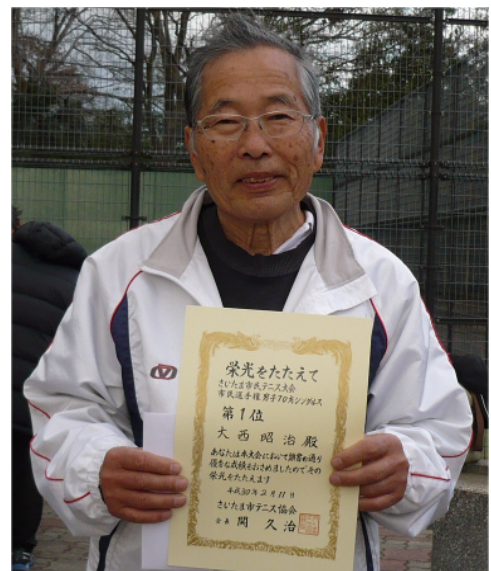 栄光をたたえて
さいたま市民テニス大会
市民選手権 男子70才シングルス
第1位
大西昭治殿
あなたは本大会において頭書の通り
優秀な成績をおさめましたのでその
栄光をたたえます
平成30年2月11日
さいたま市テニス協会
会長 関 久治